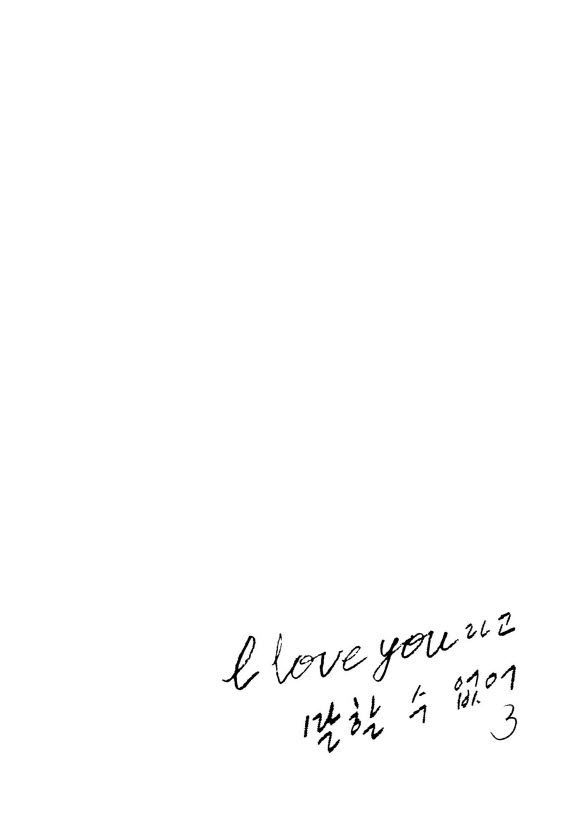 I love you라고
말할 수 없어
3